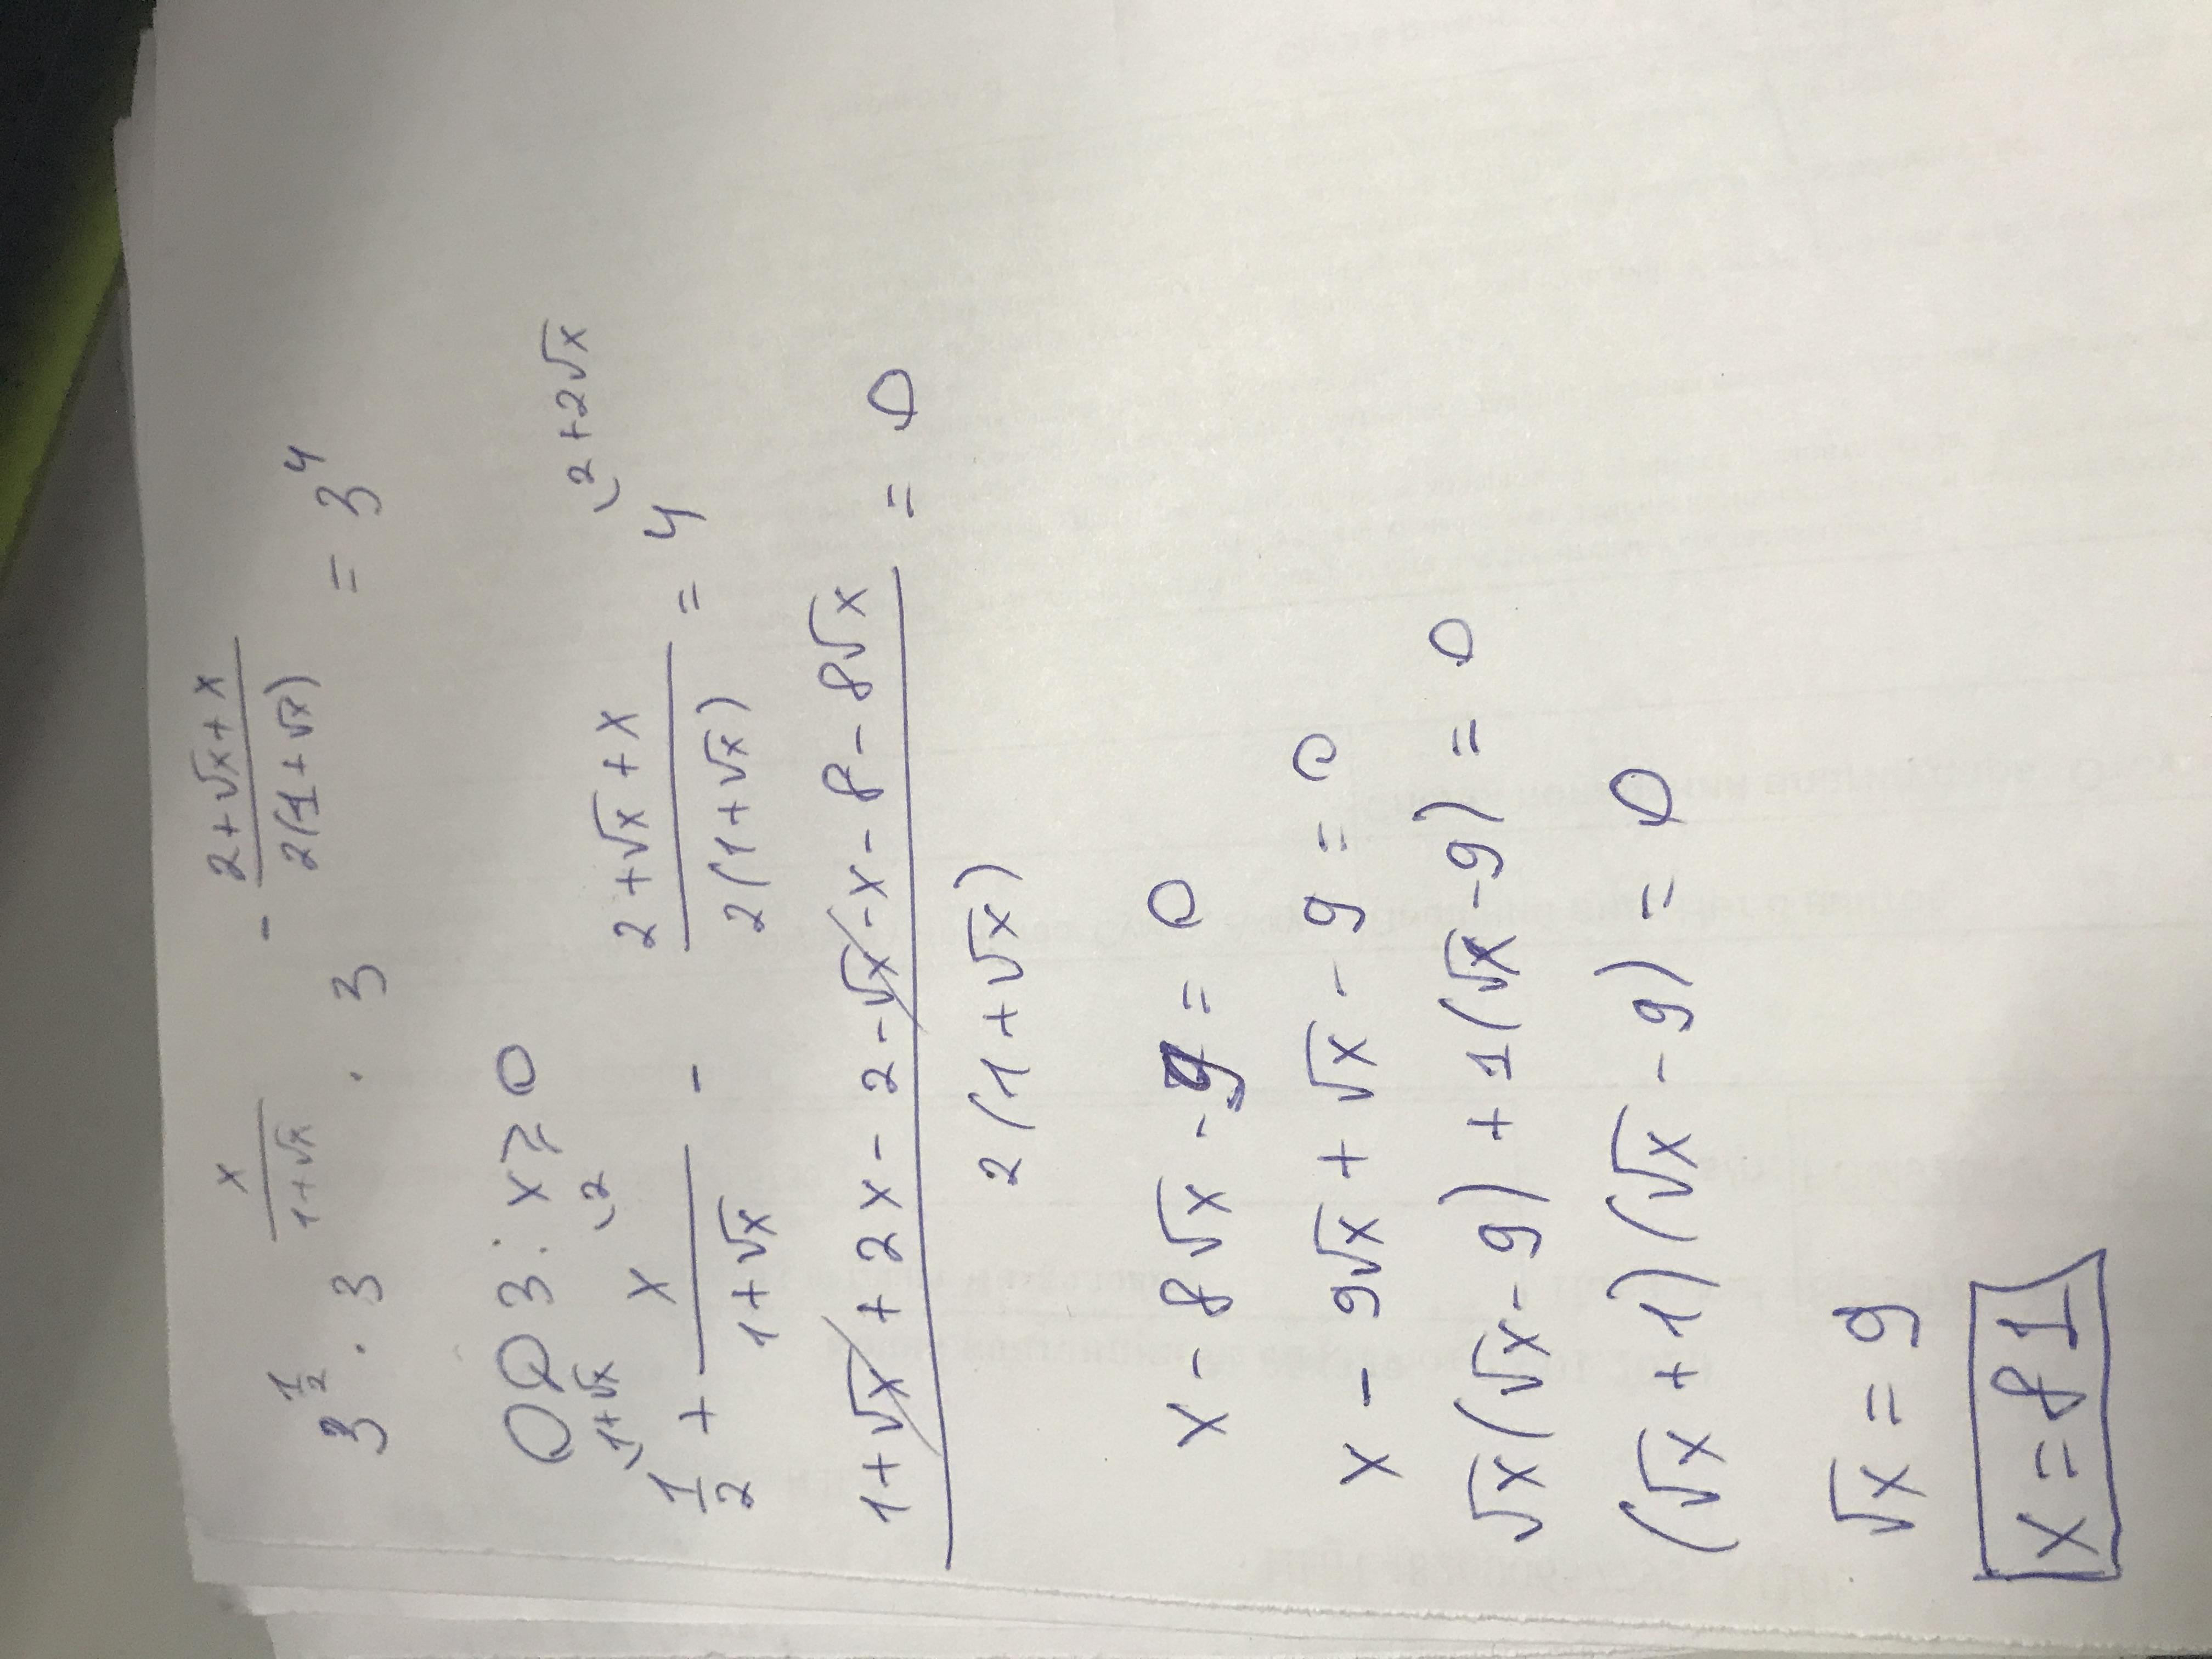 3^{\frac{1}{2}} · 3^{\frac{x}{1+√x}} · 3^{-\frac{2+√x+x}{2(1+√x)}} = 3^4
ОДЗ: x ⩾ 0
\frac{1}{2}^{\1+√x} + \frac{x}{1+√x}^{\2} - \frac{2+√x+x}{2(1+√x)} = 4^{\2+2√x}
\frac{1+√x+2x-2-√x-x-8-8√x}{2(1+√x)} = 0
x - 8√x - 9 = 0
x - 9√x + √x - 9 = 0
√x(√x-9) + 1(√x-9) = 0
(√x+1)(√x-9) = 0
√x = 9
x = 81